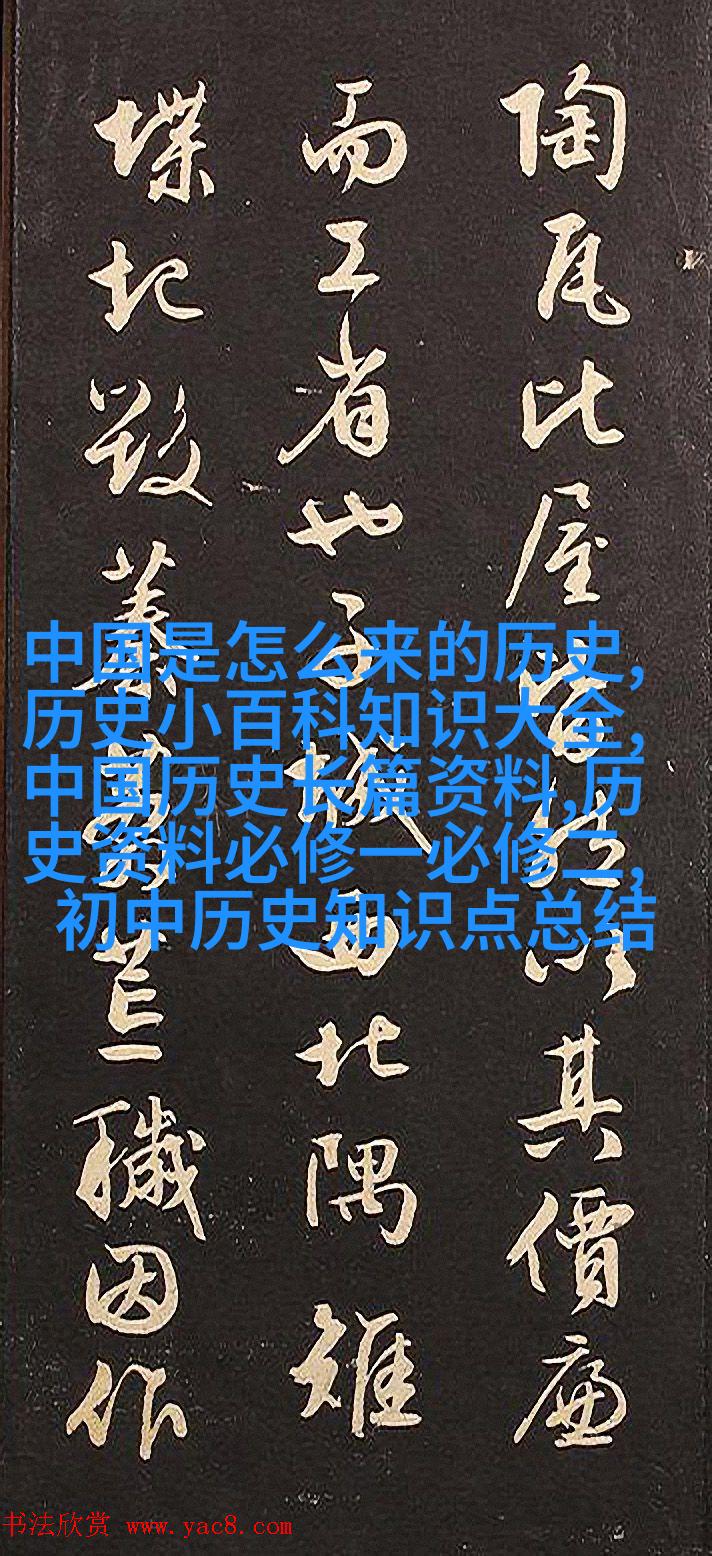 陶瓦比屋皆然以其價廉
而工省也子城西北隅雉
堞圮毀蓁莽荒穢因作
中国是怎么来的历史,
历史小百科知识大全,
中国历史长篇资料,历
史资料必修一必修二,
初中历史知识点总结
书法欣赏 www.yac8.com